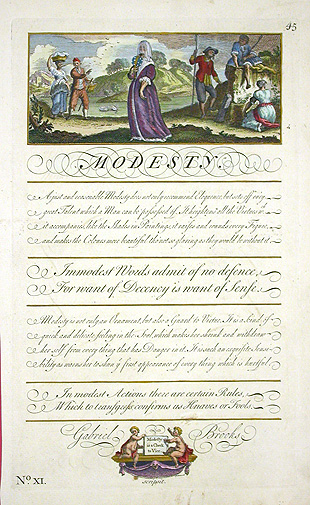 45
4
MODESTY.
A just and reasonable Modesty does not only recommend Eloquence, but sets off every
great Talent which a Man can be possessed of. It heightens all the Virtues w.ch
it accompanies, like the Shades in Paintings, it raises and rounds every Figure,
and makes the Colours more beautiful tho' not so glaring as they would be without it.
Immodest Words admit of no defence,
For want of Decency is want of Sense.
Modesty is not only an Ornament, but also a Guard to Virtue. It is a kind of
quick and delicate feeling in the Soul, which makes her shrink and withdraw
her self from every thing that has Danger in it. It is such an exquisite Sensi-
bility as warns her to shun y.e first appearance of every thing which is hurtful.
In modest Actions there are certain Rules,
Which to transgress confirms us Knaves or Fools.
Gabriel Brooks
Modesty
is a Check
to Vice.
N.o XI.
scripsit.